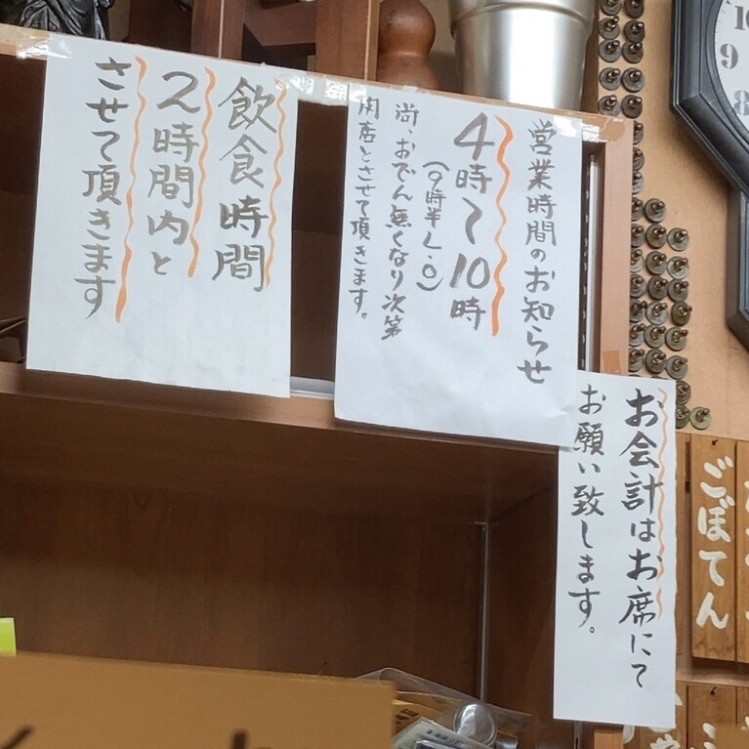 飲食時間
2時間内と
させて頂きます
営業時間のお知らせ
4時〜10時
(9時半L.O)
尚、おでん無くなり次第
閉店とさせて頂きます。
お会計はお席にて
お願い致します。
ごぼてん
10
9
8